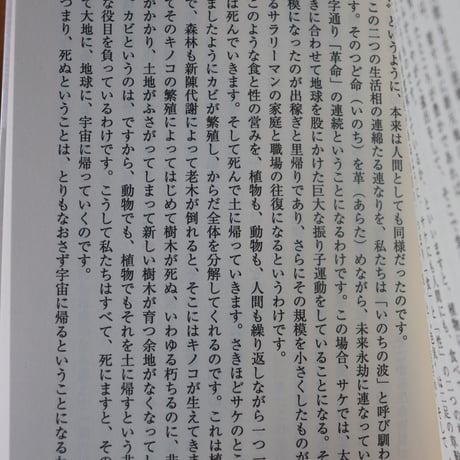 〟というように、本来は人間としても同様だったのです。
この二つの生活相の連綿たる連なりを、私たちは「いのちの波」と呼び馴わ
す。そのつど命（いのち）を革（あらた）めながら、未来永劫に連なってい
字通り「革命」の連続ということになるわけです。この場合、サケでは、太
きに合わせて地球を股にかけた巨大な振り子運動をしていることになる。そ
模になったのが出稼ぎと里帰りであり、さらにその規模を小さくしたものが
るサラリーマンの家庭と職場の往復になるというわけです。
このような食と性の営みを、植物も、動物も、人間も繰り返しながら一つ一
は死んでいきます。そして死んで土に帰っていきます。さきほどサケのとこ
ましたようにカビが繁殖し、からだ全体を分解してくれるのです。これは植
で、森林も新陳代謝によって老木が倒れると、そこにはキノコが生えてきま
てそのキノコの繁殖によってはじめて樹木が死ぬ、いわゆる朽ちるのに、非
がかかり、土地がふさがってしまって新しい樹木が育つ余地がなくなってし
カビというのは、ですから、動物でも、植物でもそれを土に帰すという非
な役目を負っているわけです。こうして私たちはすべて、死にますと、その
て大地に、地球に、宇宙に帰っていくのです。
つまり、死ぬということは、とりもなおさず宇宙に帰るということになる